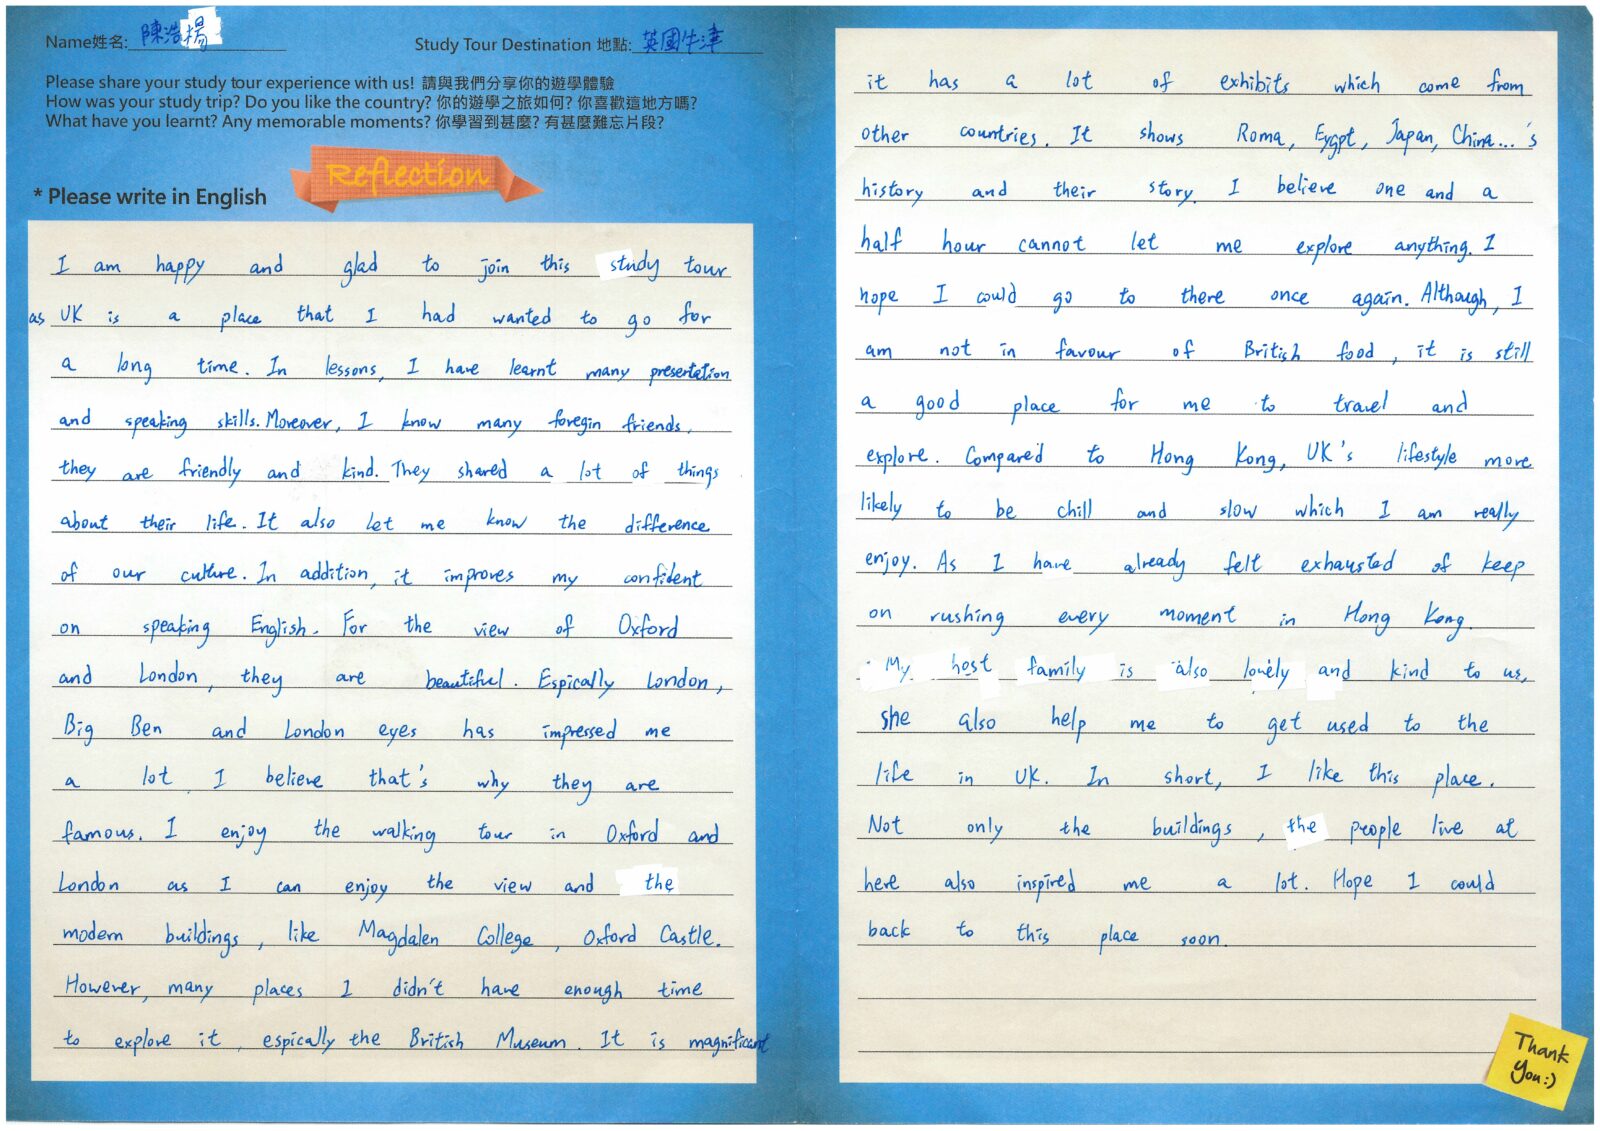 Name姓名: 陳浩楊
Study Tour Destination 地點: 英國牛津
Please share your study tour experience with us! 請與我們分享你的遊學體驗
How was your study trip? Do you like the country? 你的遊學之旅如何? 你喜歡這地方嗎?
What have you learnt? Any memorable moments? 你學習到甚麼? 有甚麼難忘片段?
Reflection
* Please write in English
I am happy and glad to join this study tour
as UK is a place that I had wanted to go for
a long time. In lessons, I have learnt many presentation
and speaking skills. Moreover, I know many foregin friends,
they are friendly and kind. They shared a lot of things
about their life. It also let me know the difference
of our culture. In addition, it improves my confident
on speaking English. For the view of Oxford
and London, they are beautiful. Espically London,
Big Ben and London eyes has impressed me
a lot. I believe that's why they are
famous. I enjoy the walking tour in Oxford and
London as I can enjoy the view and the
modern buildings, like Magdalen College, Oxford Castle.
However, many places I didn't have enough time
to explore it, espically the British Museum. It is magnificant
it has a lot of exhibits which come from
other countries. It shows Roma, Eygpt, Japan, China...'s
history and their story. I believe one and a
half hour cannot let me explore anything. I
hope I could go to there once again. Although, I
am not in favour of British food, it is still
a good place for me to travel and
explore. Compared to Hong Kong, UK's lifestyle more
likely to be chill and slow which I am really
enjoy. As I have already felt exhausted of keep
on rushing every moment in Hong Kong.
My host family is also lovely and kind to us,
she also help me to get used to the
life in UK. In short, I like this place.
Not only the buildings, the people live at
here also inspired me a lot. Hope I could
back to this place soon.
Thank
You:)